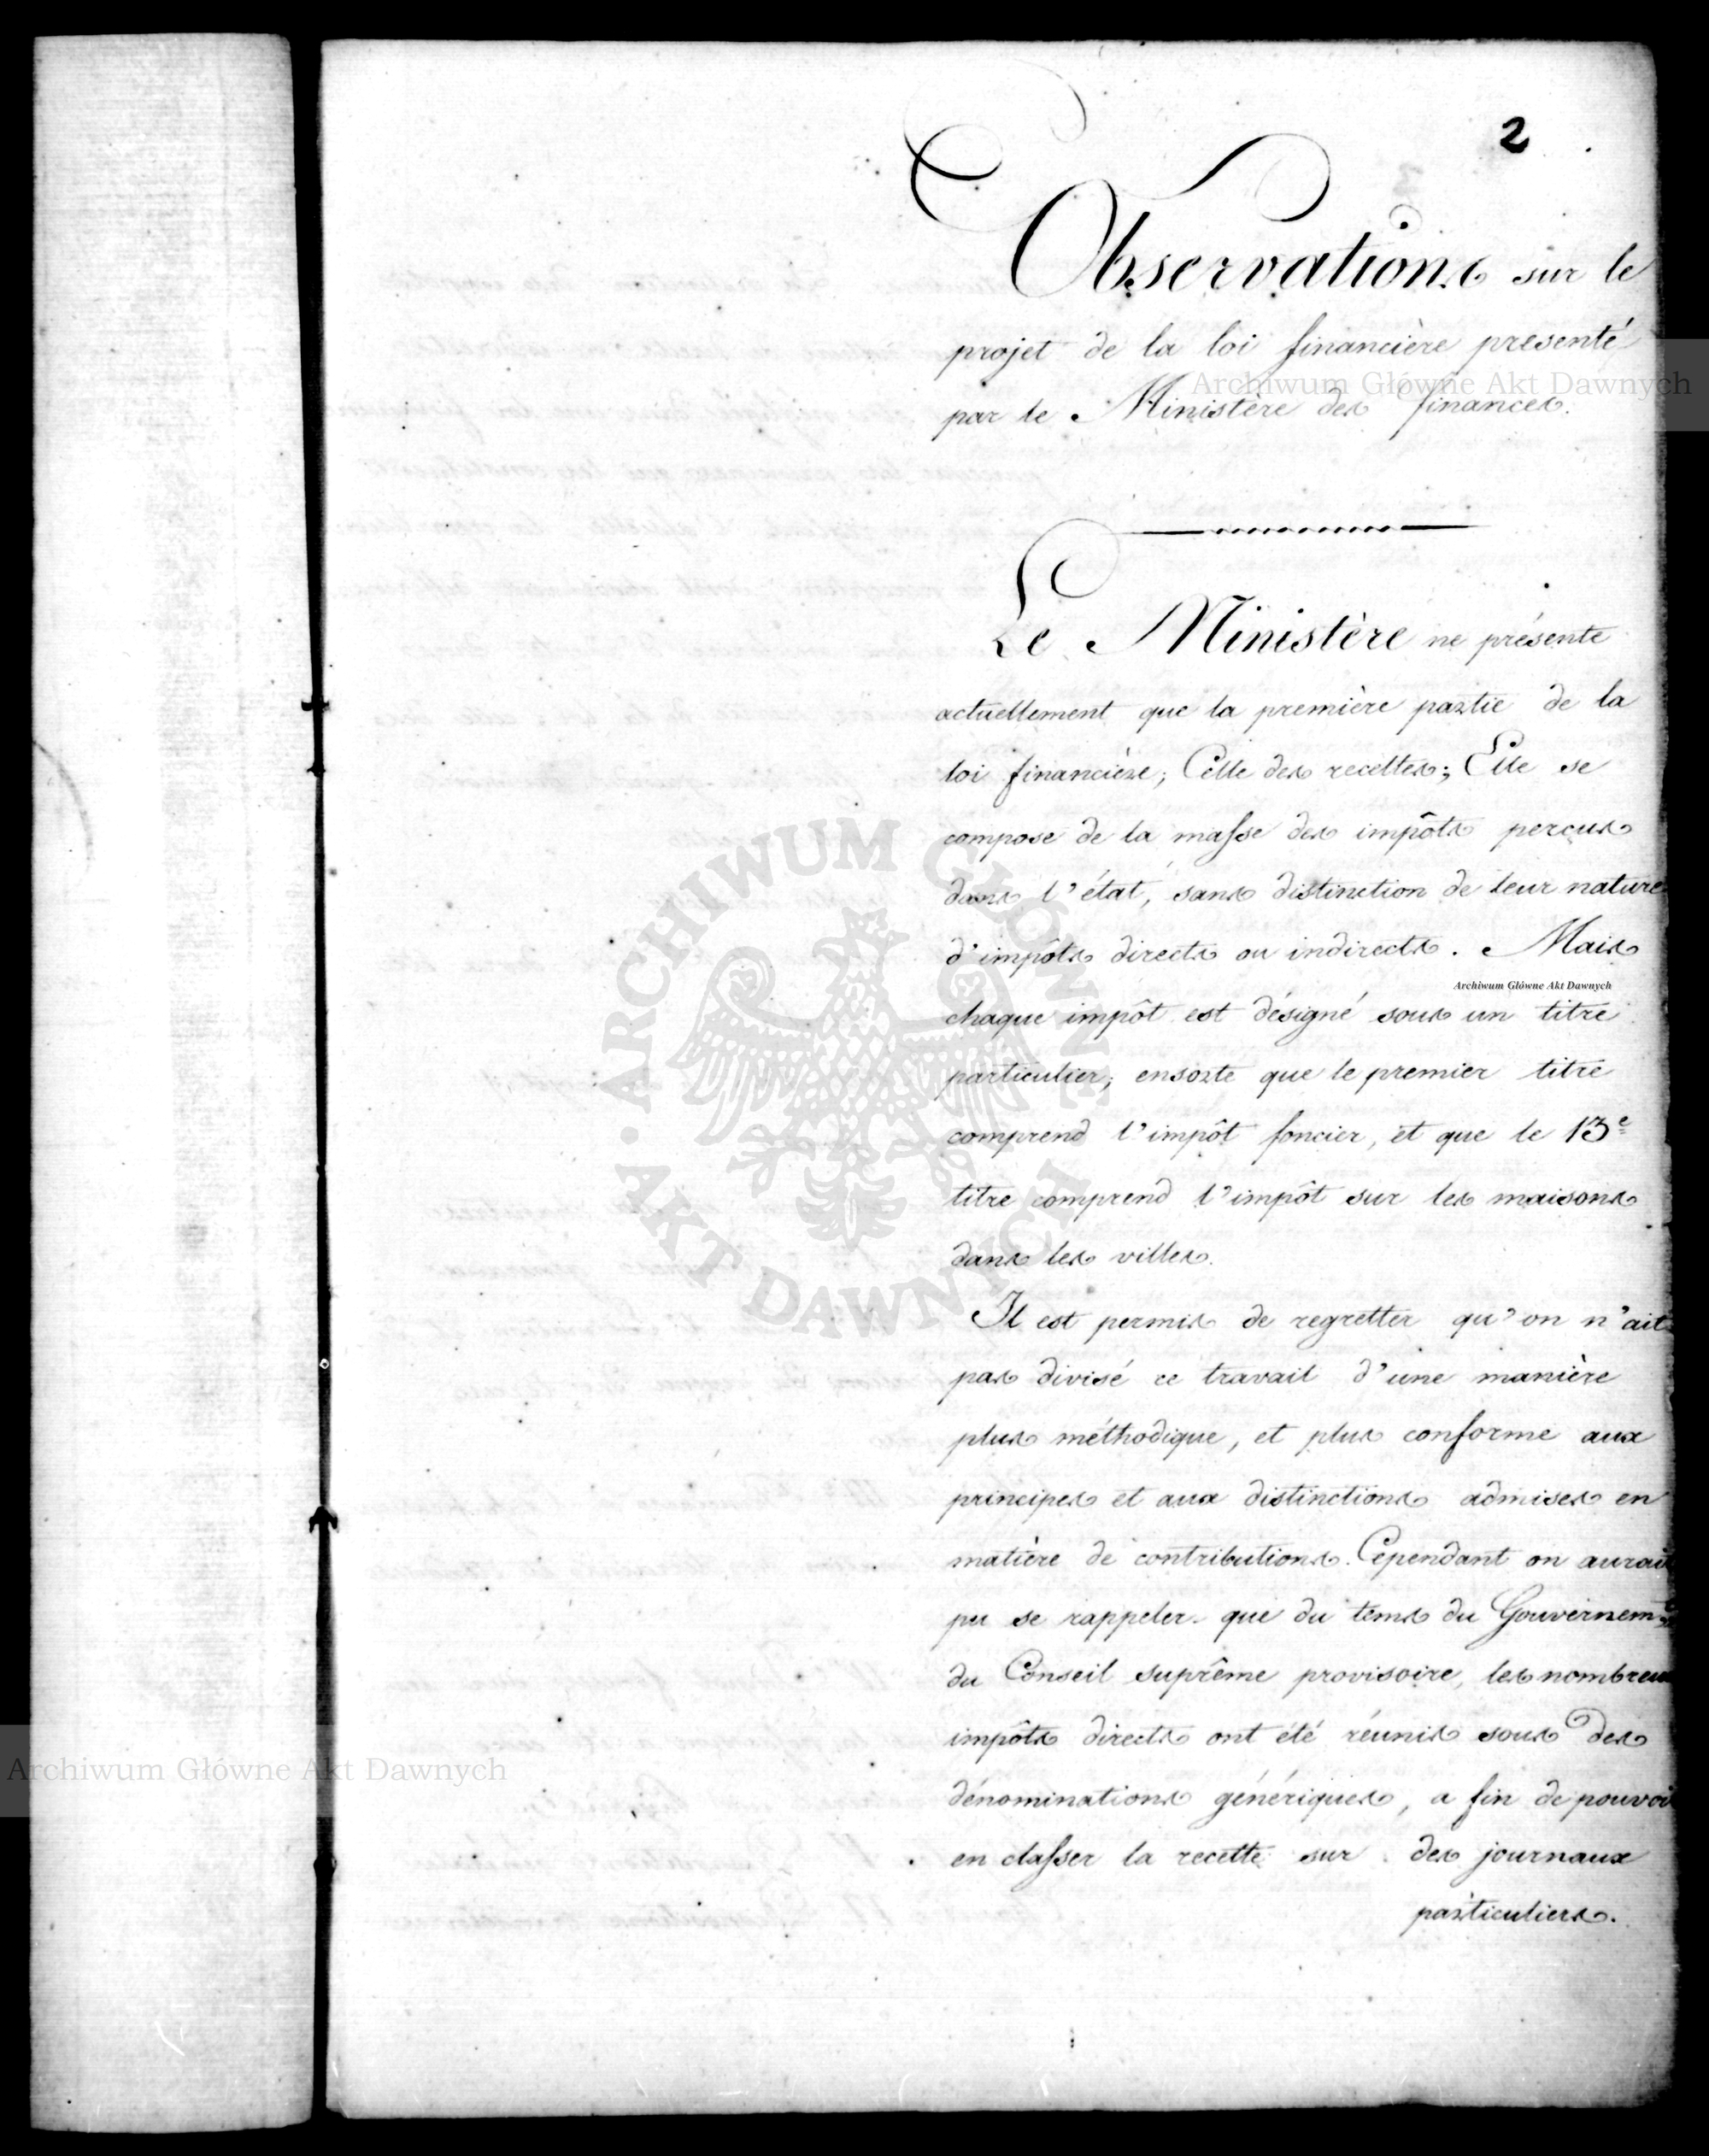 2
Observations sur le
projet de la loi financière presenté
par le Ministère des finances.
Le Ministère ne présente
actuellement que la première partie de la
loi financière; Celle des recettes; Elle se
compose de la masse des impôts perçus
dans l'état, sans distinction de leur nature
d'impôts directs ou indirects. Mais
chaque impôt est désigné sous un titre
particulier; ensorte que le premier titre
comprend l'impôt foncier, et que le 13e
titre comprend l'impôt sur les maisons
dans les villes.
Il est permis de regretter qu'on n'ait
pas divisé ce travail d'une manière
plus méthodique, et plus conforme aux
principes et aux distinctions admises en
matière de contributions. Cependant on aurait
pu se rappeler que du tems du Gouvernem.t
du Conseil suprême provisoire, les nombreux
impôts directs ont été réunis sous des
dénominations génériques, a fin de pouvoir
en classer la recette sur des journaux
particuliers.
Archiwum Główne Akt Dawnych
Archiwum Główne Akt Dawnych
Archiwum Główne Akt Dawnych
ARCHIWUM GŁÓWNE • AKT DAWNYCH